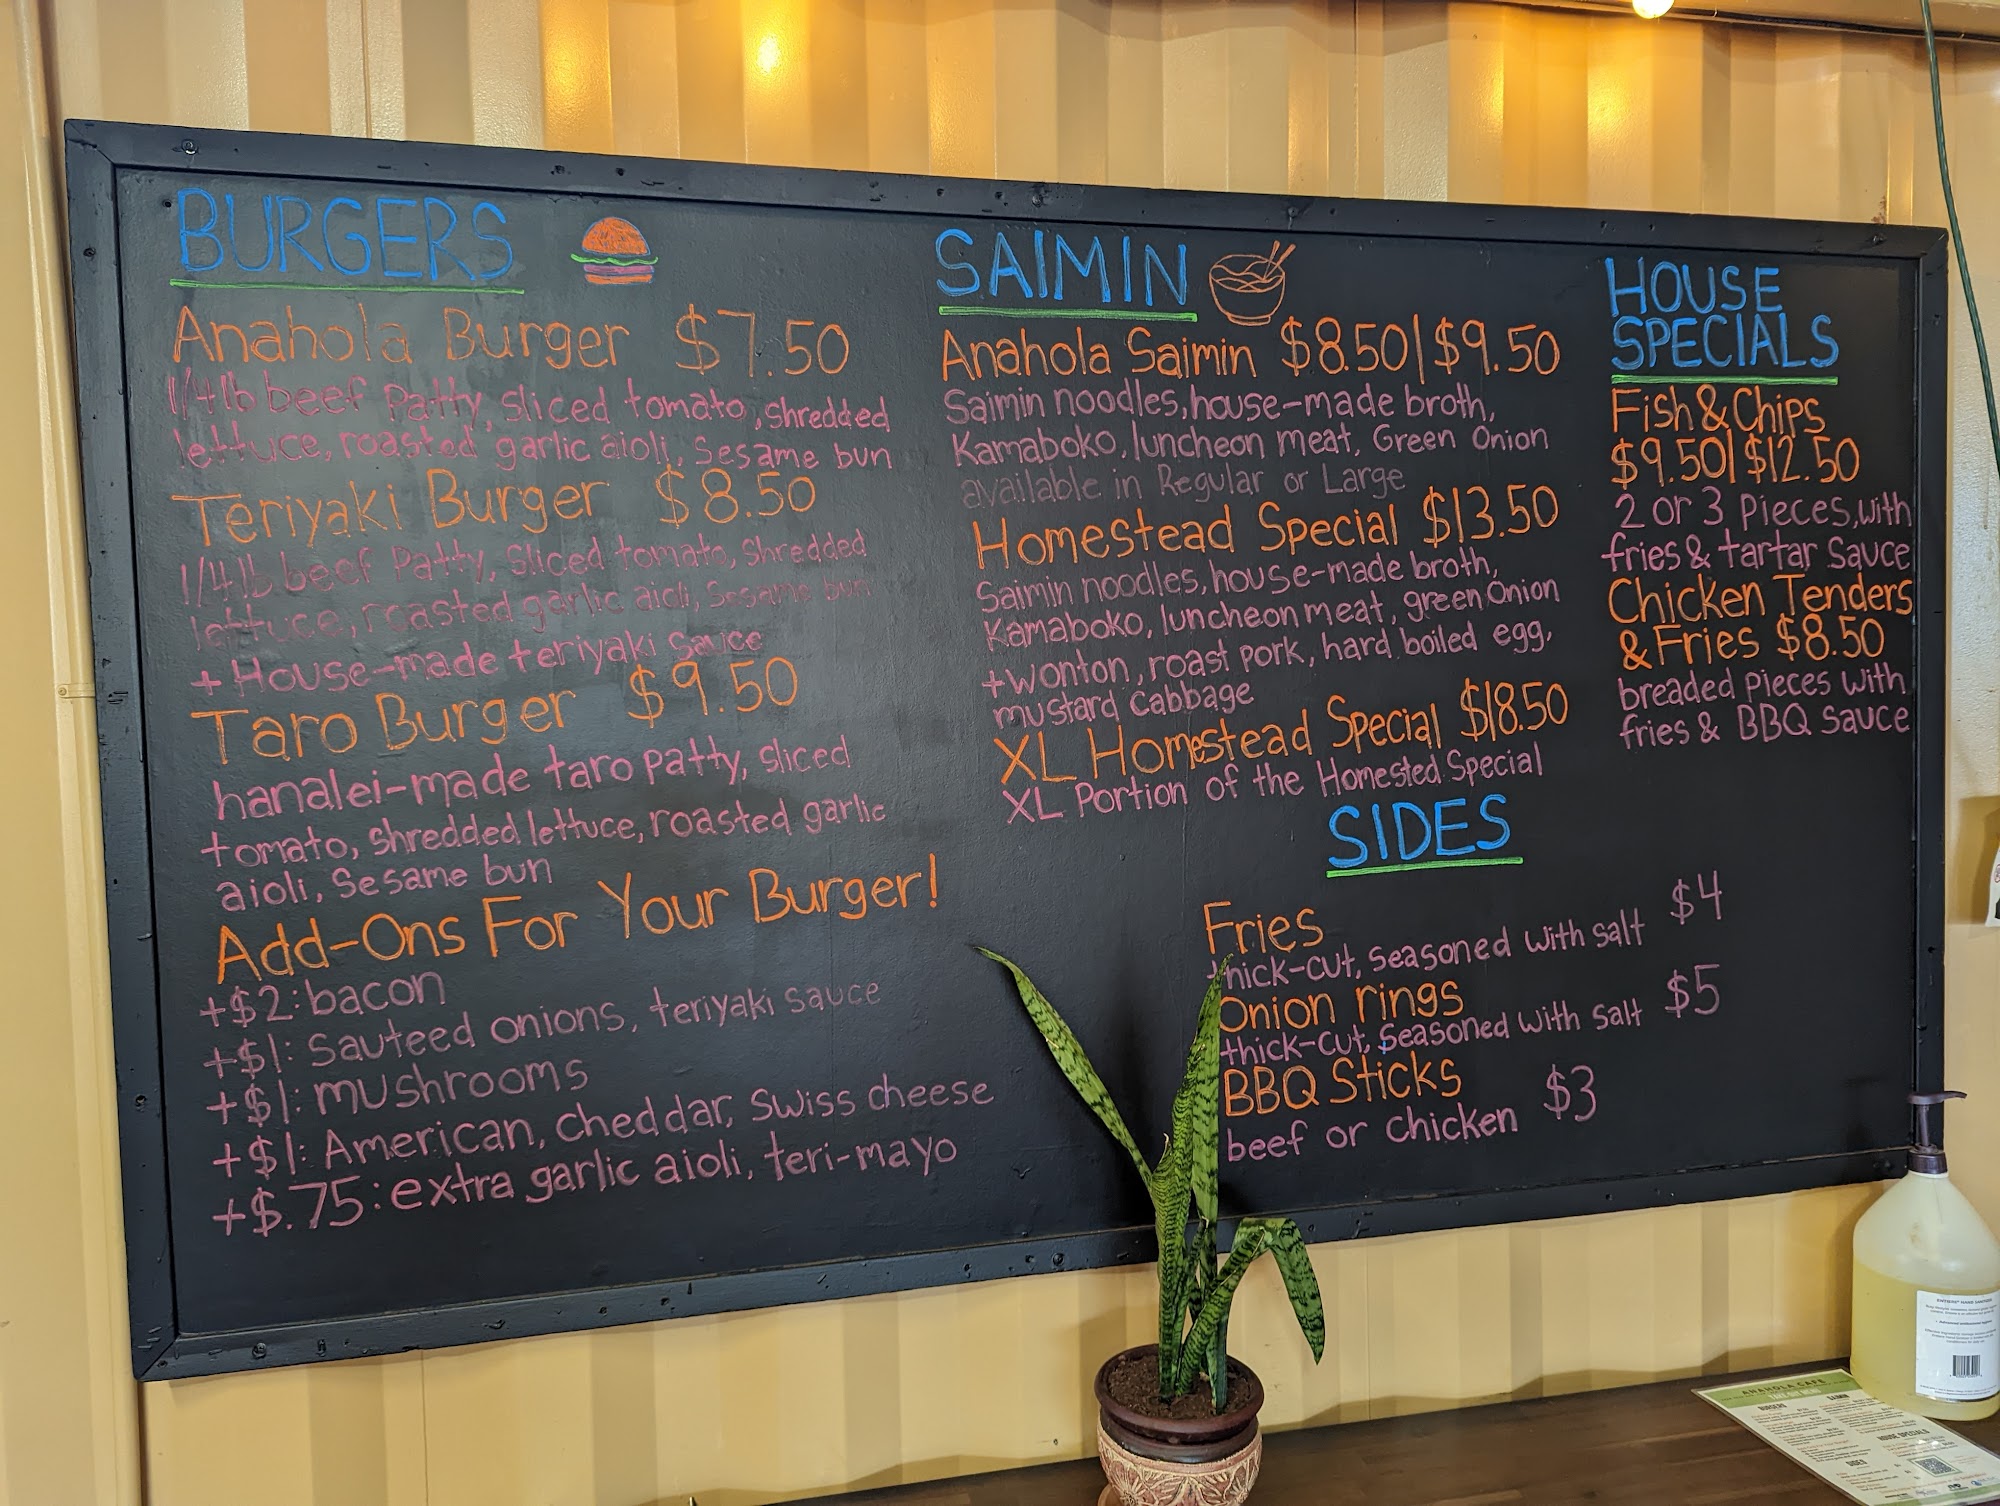 BURGERS
Anahola Burger $7.50
1/4 lb beef Patty, sliced tomato, shredded
lettuce, roasted garlic aioli, Sesame bun
Teriyaki Burger $8.50
1/4 lb beef Patty, sliced tomato, shredded
lettuce, roasted garlic aioli, Sesame bun
+ House-made teriyaki sauce
Taro Burger $9.50
hanalei-made taro patty, sliced
tomato, shredded lettuce, roasted garlic
aioli, Sesame bun
Add-Ons For Your Burger!
+$2: bacon
+$1: Sauteed onions, teriyaki sauce
+$1: mushrooms
+$1: American, cheddar, swiss cheese
+$.75: extra garlic aioli, teri-mayo
SAIMIN
Anahola Saimin $8.50|$9.50
Saimin noodles, house-made broth,
Kamaboko, luncheon meat, Green Onion
available in Regular or Large
Homestead Special $13.50
Saimin noodles, house-made broth,
Kamaboko, luncheon meat, green Onion
+wonton, roast pork, hard boiled egg,
mustard cabbage
XL Homestead Special $18.50
XL Portion of the Homested Special
HOUSE
SPECIALS
Fish & Chips
$9.50|$12.50
2 or 3 Pieces, with
fries & tartar Sauce
Chicken Tenders
& Fries $8.50
breaded pieces with
fries & BBQ sauce
SIDES
Fries $4
thick-cut, seasoned with salt
Onion rings $5
thick-cut, seasoned with salt
BBQ Sticks $3
beef or chicken
ANAHOLA CAFE
BURGERS
SAIMIN
HOUSE SPECIALS
SIDES